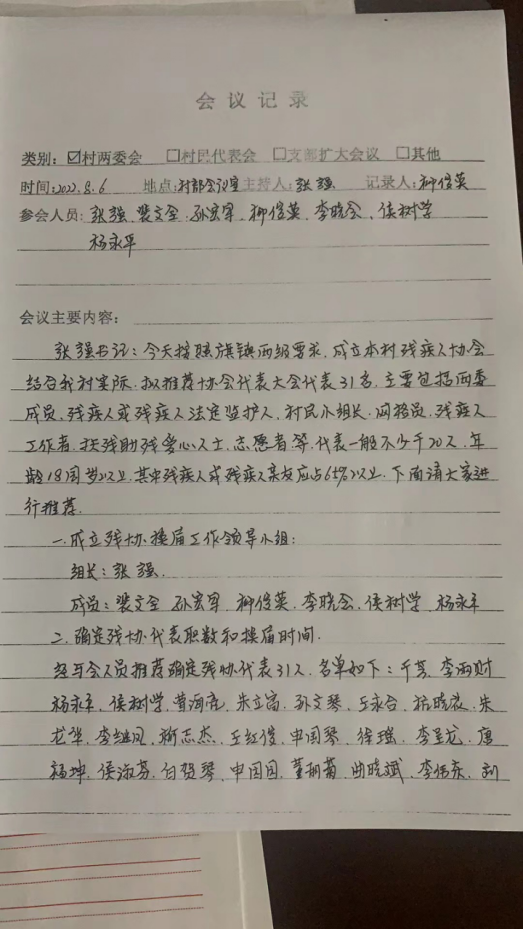 会议记录
类别：☑村两委会 □村民代表会 □支部扩大会议 □其他
时间：2022.8.6 地点：村部会议室 主持人：张强 记录人：柳俊英
参会人员：张强、裴文全、孙宏军、柳俊英、李晓会、侯树学
杨永平
会议主要内容：
张强书记：今天按照旗镇两级要求，成立本村残疾人协会
结合我村实际，拟推荐协会代表大会代表31名，主要包括两委
成员、残疾人或残疾人法定监护人、村民小组长、网格员、残疾人
工作者、扶残助残爱心人士、志愿者等，代表一般不少于20人，年
龄18周岁以上，其中残疾人或残疾人亲友应占65%以上，下面请大家进
行推荐.
一.成立残协换届工作领导小组：
组长：张强.
成员：裴文全 孙宏军 柳俊英、李晓会、侯树学、杨永平
二、确定残协代表职数和换届时间.
经与会人员推荐确定残协代表31人，名单如下：于芸、李雨财
杨永平、侯树学、黄海亮、朱立富、孙文琴、王永合、 朱
龙华、李继凤、 志杰、王红俊、申国琴、徐瑶、李呈龙、唐
福坤、侯淑芬、白贺琴、申国国、董丽菊、曲晓斌、李伟东、刘